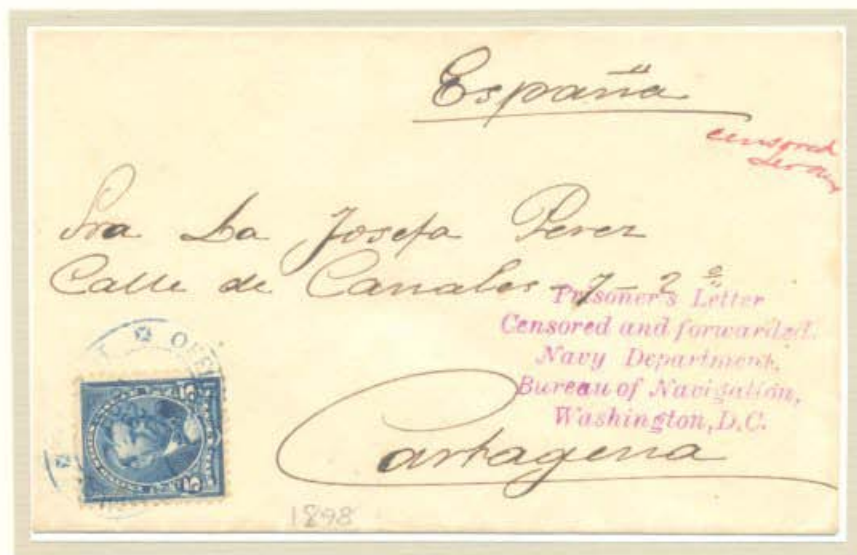 España
Censored
Sra Da Josefa Perez
Calle de Canales - 7 - 2º
Prisoner's Letter
Censored and forwarded.
Navy Department,
Bureau of Navigation,
Washington, D.C.
Cartagena
1898